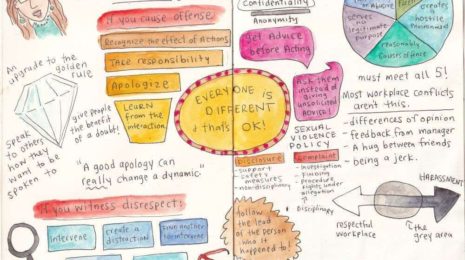 If you cause offense
Recognize the effect of Actions
Take responsibility
Apologize
LEARN
from the
interaction.
An
upgrade to the
golden
rule
speak
to others
how they
want to be
spoken to
give people
the benefit
of a doubt!
"A good apology can
really change a dynamic"
If you witness disrespect:
intervene
create a
distraction
Confidentiality
Anonymity
Get Advice
before Acting
EVERYONE IS
DIFFERENT
+ that's OK!
Ask them
instead of
giving
unsolicited
ADVICE!
SEXUAL
VIOLENCE
POLICY
Disclosure
- support
- safety
measures
- nondisciplinary
Complaint
- Investigation
- Finding
- Procedure,
rights under
allegation
Disciplinary
follow
the lead
of the person
who it
happened to!
serves no
legitimate
purpose
creates a
hostile
environment
reasonably
causes offence
must meet all 5!
Most workplace conflicts
aren't this.
- differences of opinion
- feedback from manager
- A hug between friends
- being a jerk.
HARASSMENT
respectful
workplace
the
grey area